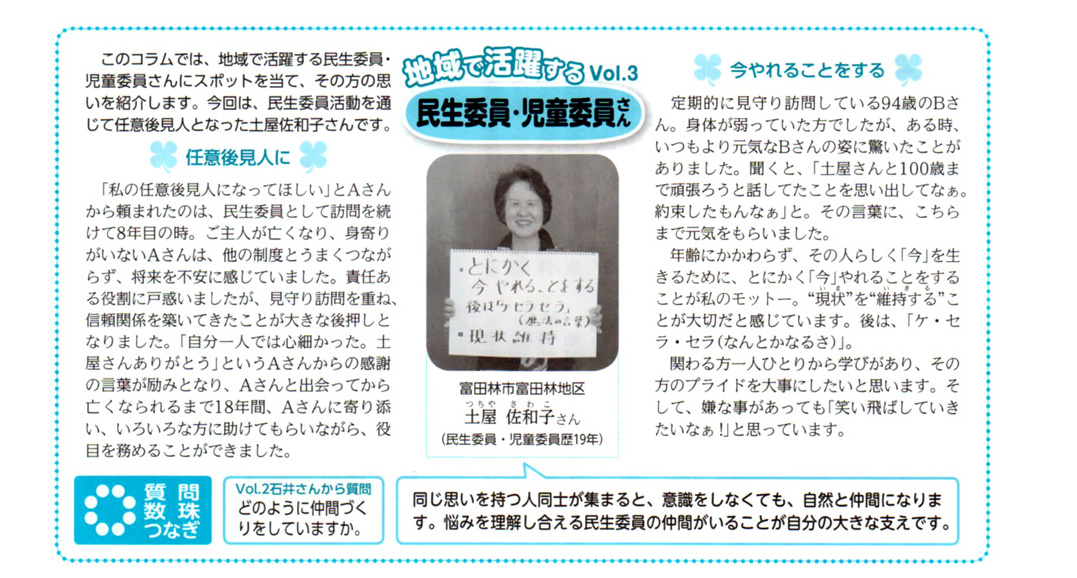 このコラムでは、地域で活躍する民生委員・
児童委員さんにスポットを当て、その方の思
いを紹介します。今回は、民生委員活動を通
じて任意後見人となった土屋佐和子さんです。
地域で活躍する Vol.3
民生委員・児童委員さん
任意後見人に
「私の任意後見人になってほしい」とAさん
から頼まれたのは、民生委員として訪問を続
けて8年目の時。ご主人が亡くなり、身寄り
がいないAさんは、他の制度とうまくつなが
らず、将来を不安に感じていました。責任あ
る役割に戸惑いましたが、見守り訪問を重ね、
信頼関係を築いてきたことが大きな後押しと
なりました。「自分一人では心細かった。土
屋さんありがとう」というAさんからの感謝
の言葉が励みとなり、Aさんと出会ってから
亡くなられるまで18年間、Aさんに寄り添
い、いろいろな方に助けてもらいながら、役
目を務めることができました。
・とにかく
今やれることをする
後は「ケセラセラ」
(魔法の言葉)
・現状維持
富田林市富田林地区
つちや さわこ
土屋 佐和子さん
(民生委員・児童委員歴19年)
今やれることをする
定期的に見守り訪問している94歳のBさ
ん。身体が弱っていた方でしたが、ある時、
いつもより元気なBさんの姿に驚いたことが
ありました。聞くと、「土屋さんと100歳ま
で頑張ろうと話してたことを思い出してなぁ。
約束したもんなぁ」と。その言葉に、こちら
まで元気をもらいました。
年齢にかかわらず、その人らしく「今」を生
きるために、とにかく「今」やれることをする
ことが私のモットー。“現状”を“維持する”こ
とが大切だと感じています。後は、「ケ・セ
ラ・セラ(なんとかなるさ)」。
関わる方一人ひとりから学びがあり、その
方のプライドを大事にしたいと思います。そ
して、嫌な事があっても「笑い飛ばしていき
たいなぁ!」と思っています。
質問
数珠
つなぎ
Vol.2石井さんから質問
どのように仲間づく
りをしていますか。
同じ思いを持つ人同士が集まると、意識をしなくても、自然と仲間になりま
す。悩みを理解し合える民生委員の仲間がいることが自分の大きな支えです。